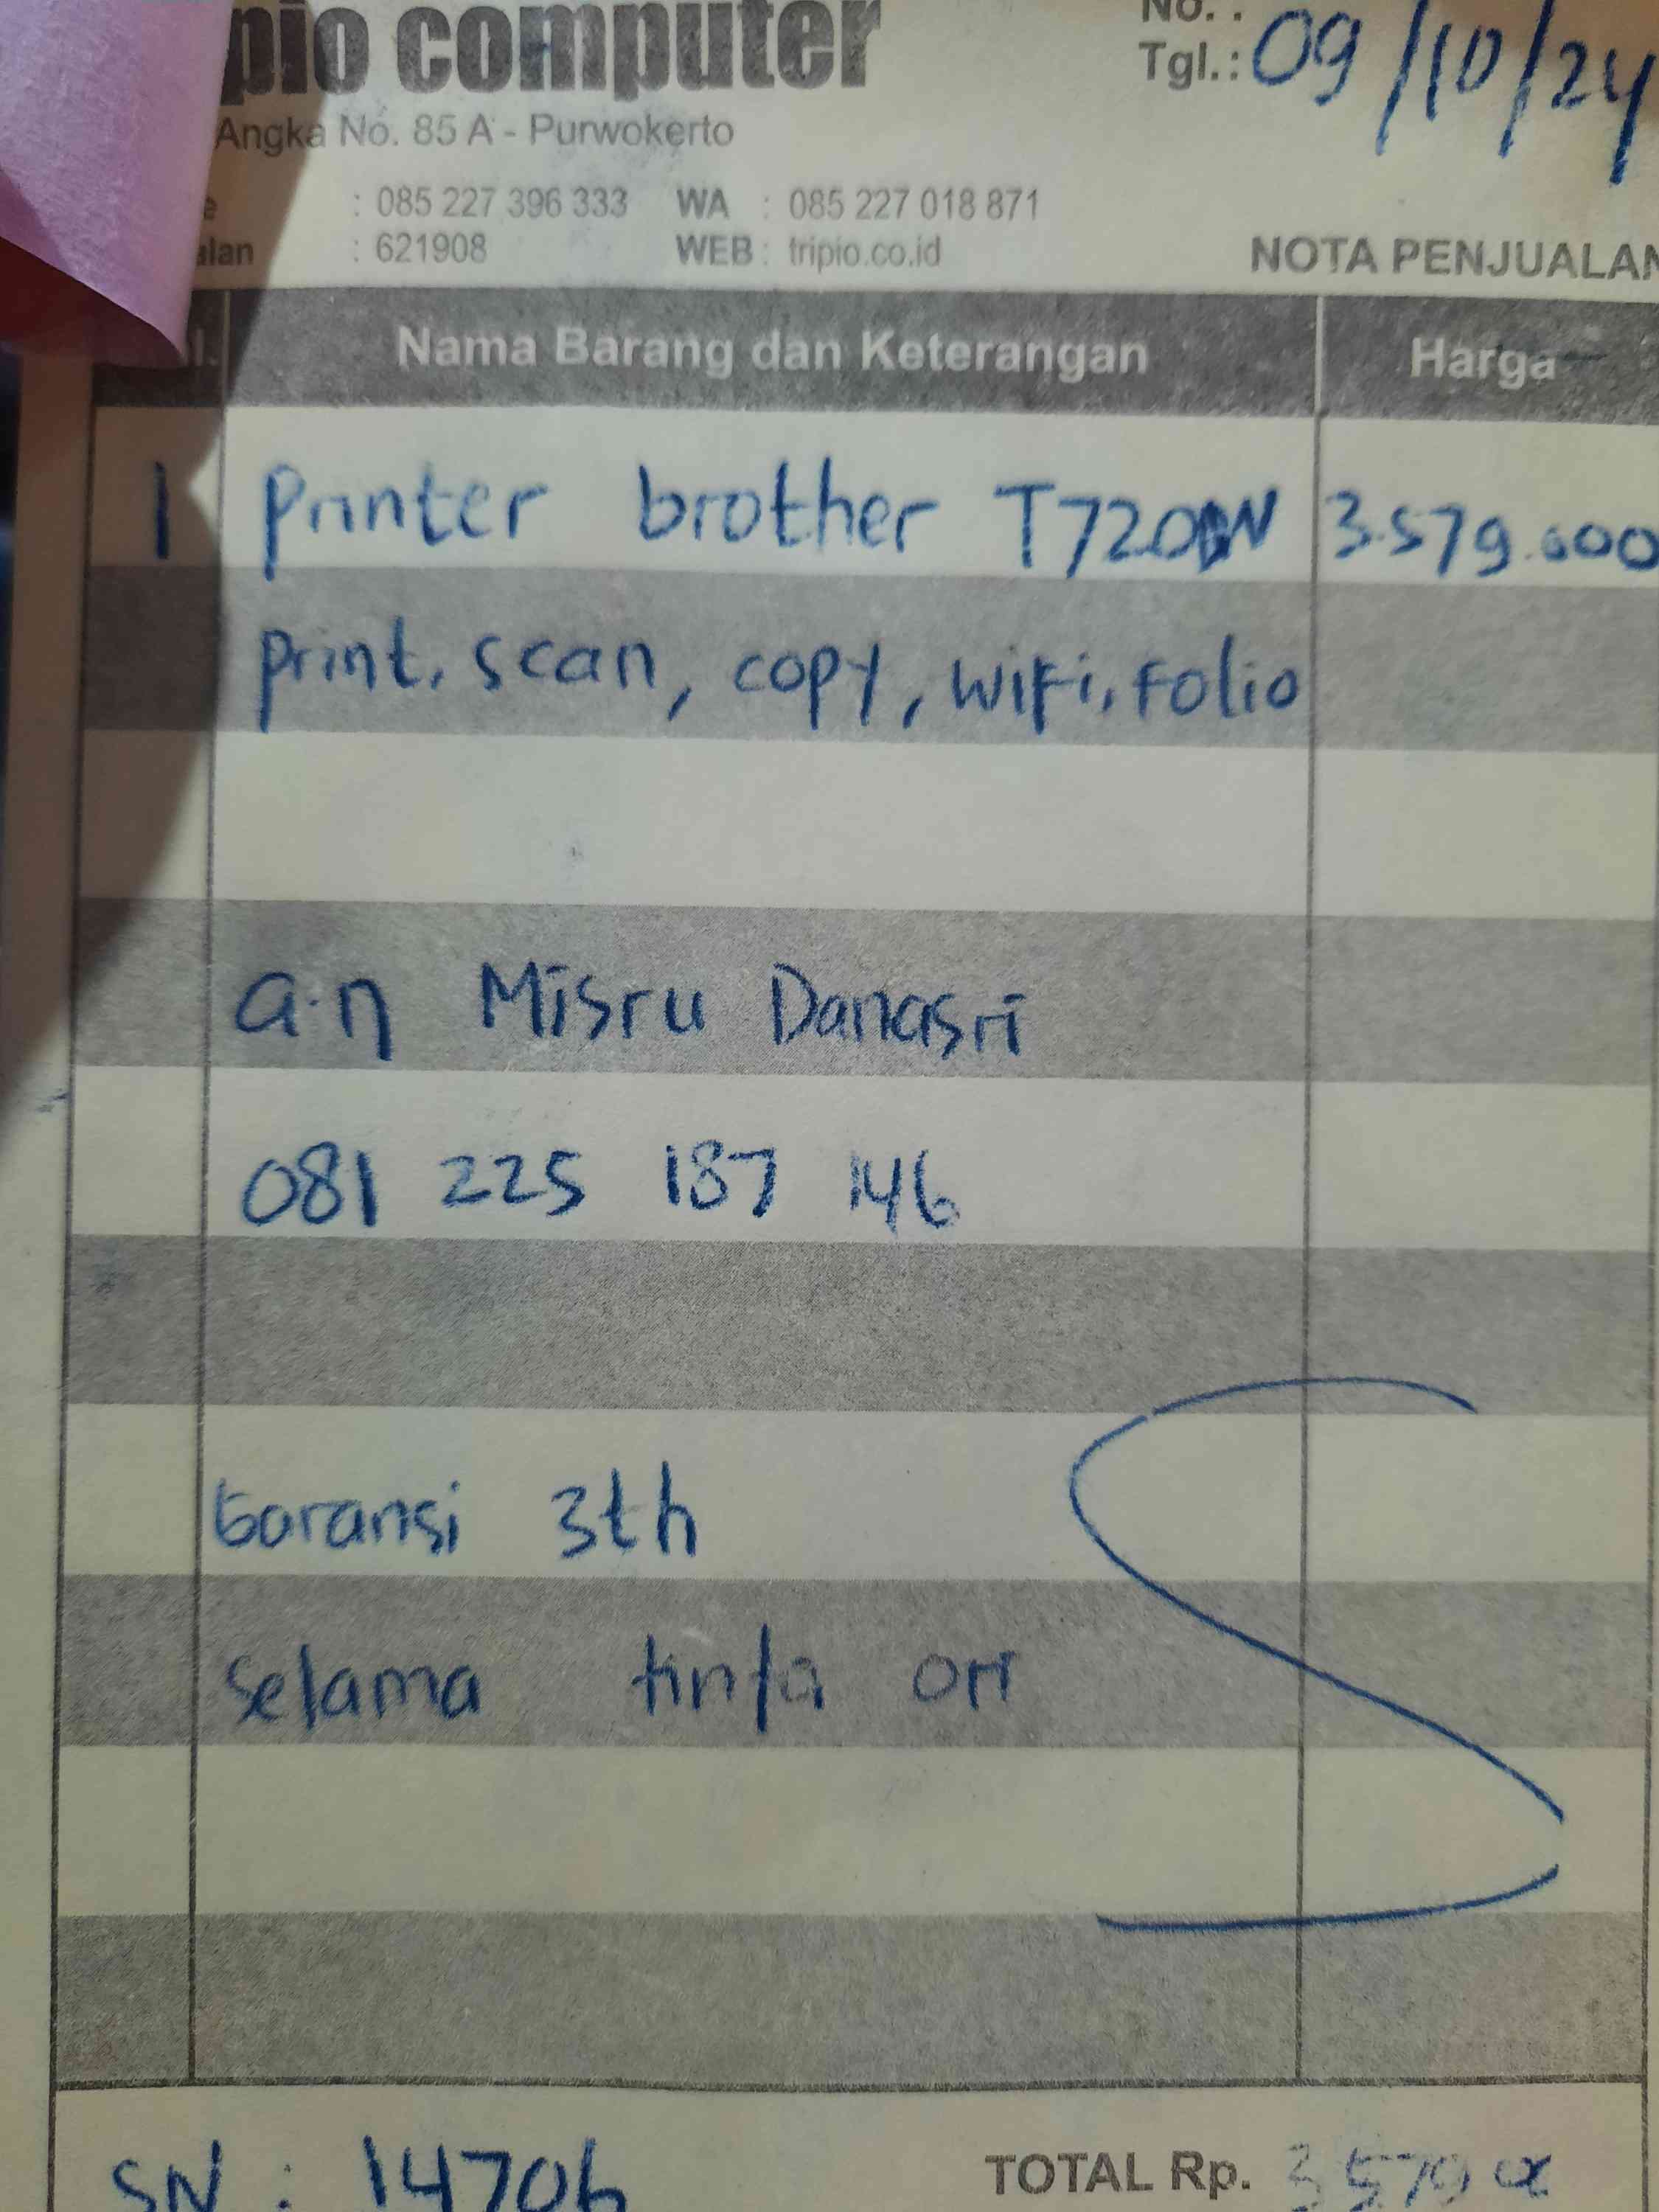 pio computer
No. :
Tgl.: 09/10/24
Angka No. 85 A - Purwokerto
e : 085 227 396 333 WA : 085 227 018 871
alan : 621908 WEB : tripio.co.id
NOTA PENJUALAN
l. Nama Barang dan Keterangan Harga
1 Printer brother T720DW 3.579.000
print, scan, copy, wifi, folio
a.n Misru Danasri
081 225 187 146
Garansi 3th
selama tinta ori
SN : 14706 TOTAL Rp. 3579